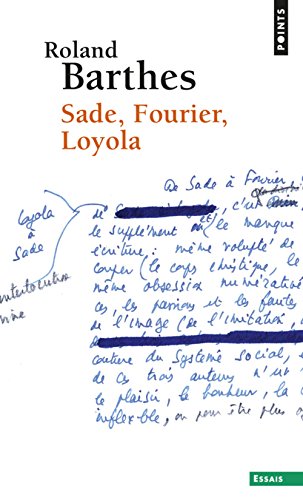 POINTS
Roland
Barthes
Sade, Fourier,
Loyola
De Sade à Fourier,
de , c'est
Loyola
à
Sade
le supplément le manque
écriture : même volupté de
couper (le corps christique, le
même obsession numérative
ces, les passions et les fautes
de l'image (de l'imitation,
couture du système social,
de ces trois auteurs n'
le plaisir, le bonheur, la
inflexible, ou pour être plus
ESSAIS